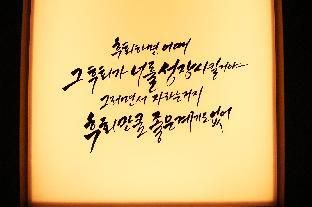 후회하면 어때
그 후회가 너를 성장시킬거야
그러면서 자라는거지
후회만큼 좋은 계기도 없어